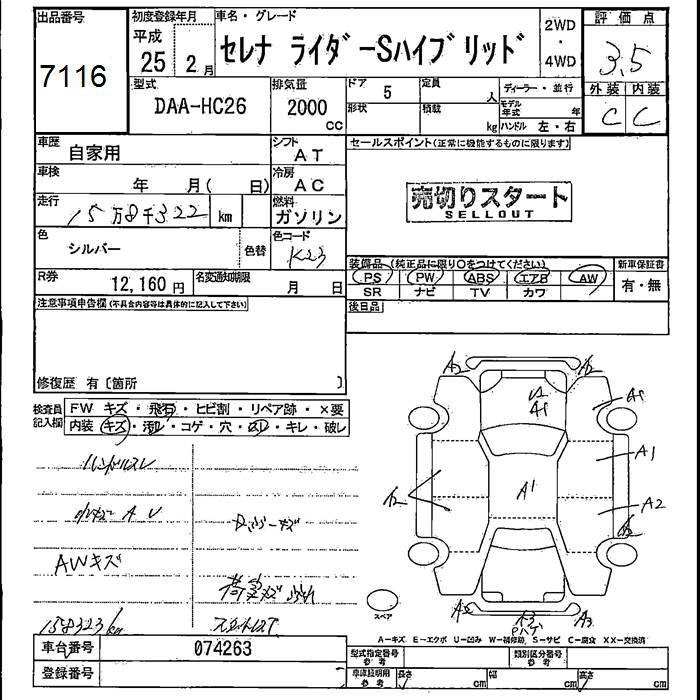 出品番号
7116
初度登録年月
平成
25 2月
車名・グレード
セレナ ライダーSハイブリッド
2WD
・
4WD
評価点
3.5
外装 内装
C C
型式
DAA-HC26
排気量
2000
cc
ドア
5
定員
人
形状
積載
kg
ディーラー・並行
モデル年式 年
ハンドル 左・右
車歴
自家用
シフト
AT
車検
年 月( 日)
冷房
AC
走行
15万8千322 km
燃料
ガソリン
色
シルバー
色替
色コード
K23
R券
12,160円
名変通知期限
月 日
セールスポイント(正常に機能するものに限ります)
売切りスタート
SELLOUT
装備品(純正品に限り○をつけてください)
PS PW ABS エアB AW
SR ナビ TV カワ
新車保証書
有・無
後日品
注意事項申告欄(不具合内容等は具体的に記入して下さい)
修復歴 有〔箇所 〕
検査員
記入欄
FW キズ・飛石・ヒビ割・リペア跡・×要
内装 キズ・汚レ・コゲ・穴・スレ・キレ・破レ
ハンドルスレ
AWキズ
158323km
A2 A2
A1
A1
A1
A2
A2
A3
Pハゲ
スペア
A-キズ E-エクボ U-凹み W-補修跡 S-サビ C-腐食 XX-交換済
車台番号
074263
登録番号
型式指定番号
参考
類別区分番号
参考
車庫証明用
参考
長さ cm
幅 cm
高さ cm